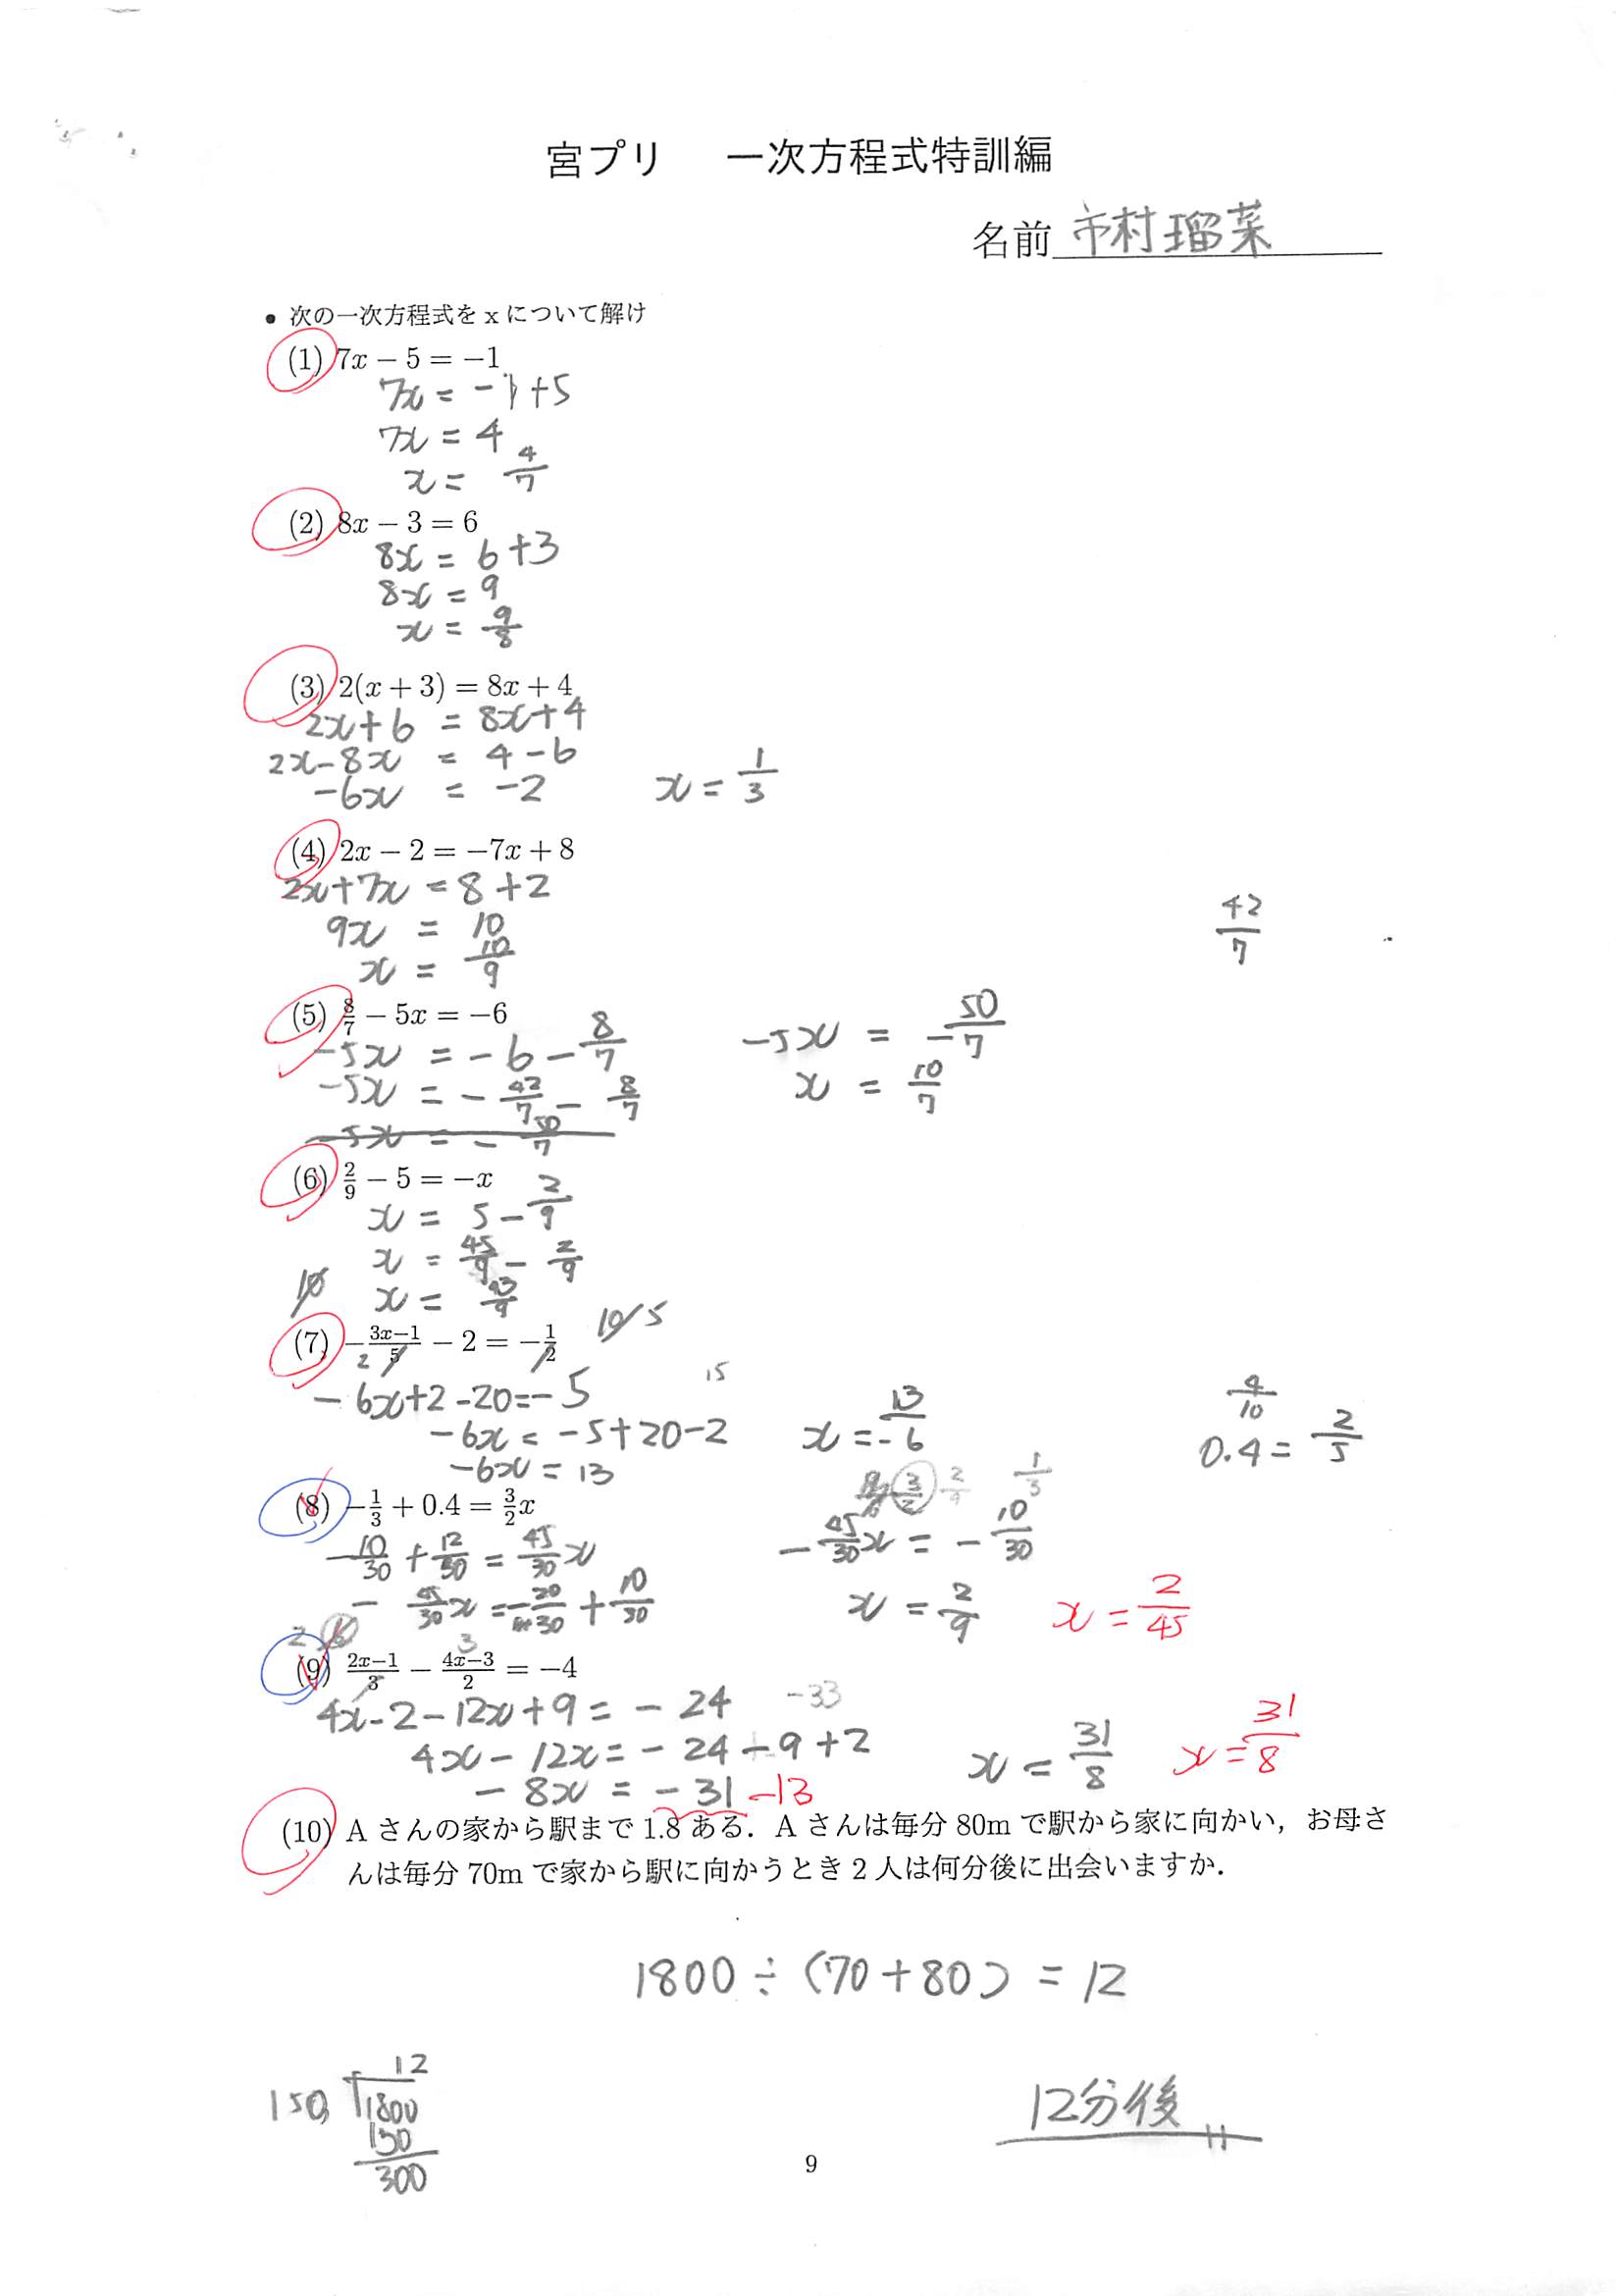 宮プリ　一次方程式特訓編
名前 市村瑠菜
• 次の一次方程式を x について解け
(1) 7x − 5 = −1
7x = −1+5
7x = 4
x = 4/7
(2) 8x − 3 = 6
8x = 6+3
8x = 9
x = 9/8
(3) 2(x + 3) = 8x + 4
2x+6 = 8x+4
2x−8x = 4−6
−6x = −2　x = 1/3
(4) 2x − 2 = −7x + 8
2x+7x = 8+2
9x = 10
42/7
x = 10/9
(5) 8/7 − 5x = −6
−5x = −6−8/7　−5x = −50/7
−5x = −42/7 − 8/7　x = 10/7
−5x = −50/7
(6) 2/9 − 5 = −x
x = 5−2/9
x = 45/9 − 2/9
10　x = 43/9
(7) −(3x−1)/5 − 2 = −1/2　10/5
2
15
−6x+2−20=−5　4/10
−6x = −5+20−2　x = 13/−6　0.4 = 2/5
−6x = 13
3/2　2/9　1/3
(8) −1/3 + 0.4 = 3/2 x
−10/30 + 12/30 = 45/30 x　−45/30 x = −10/30
− 45/30 x = −20/30 + 10/30　x = 2/9　x = 2/45
2　3
(9) (2x−1)/3 − (4x−3)/2 = −4
4x−2−12x+9 = −24　−33
4x−12x = −24−9+2　x = 31/8　x = 31/8
−8x = −31 −13
(10) A さんの家から駅まで 1.8 ある．A さんは毎分 80m で駅から家に向かい，お母さ
んは毎分 70m で家から駅に向かうとき 2 人は何分後に出会いますか．
1800 ÷ (70+80) = 12
12
150 1800
150
300
12分後
9